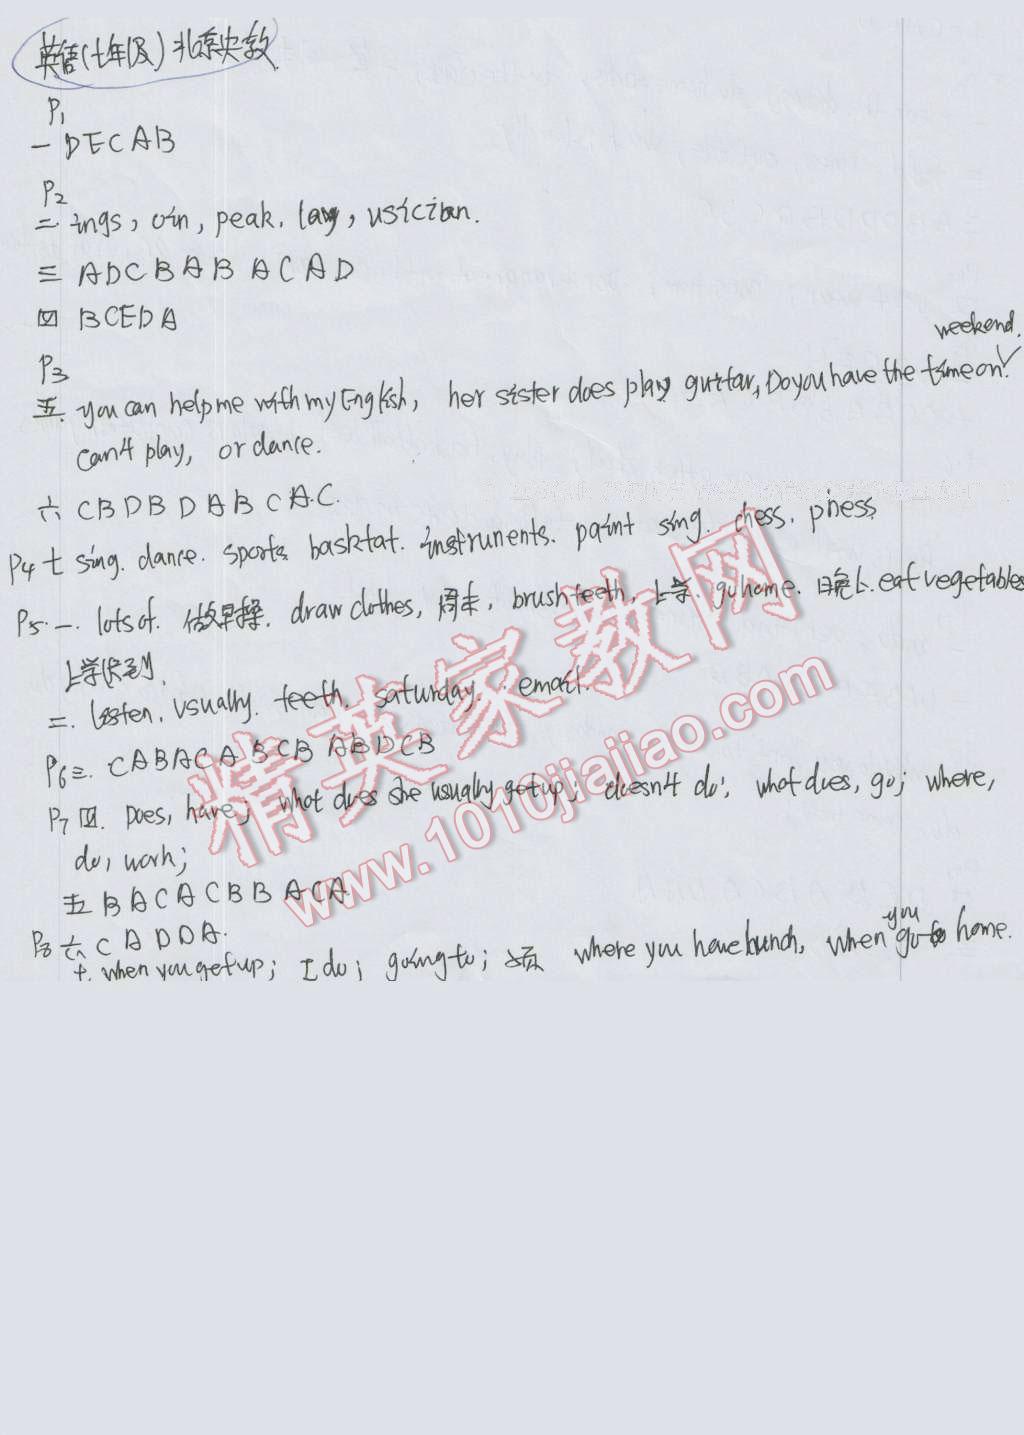 英语(七年级)北京央教
P1
一 DECAB
P2
二 ings, oin, peak, lay, usician.
三 ADCBAB ACAD
四 BCEDA
weekend.
P3
五. you can help me with my English, her sister does play guitar, Do you have the time on
can't play, or dance.
六 CBDBDABCAC.
P4 七 sing. dance. sports. basktat. instrunents. paint sing. chess. piness
P5. 一. lots of. 做早操. draw clothes, 周末, brush teeth, 上学. go home. 晚上. eat vegetables
上学迟到.
二. listen. usually. teeth. saturday. email.
P6 三. CABACABCB ABDCB
P7 四. Does, have; what does she usually get up; doesn't do; what does, go; where,
do, work;
五 BACACBBACA
P8 六 CADDA.
you
七. when you get up; I do; going to; where you have lunch, when go to home.
精英家教网
www.1010jiajiao.com